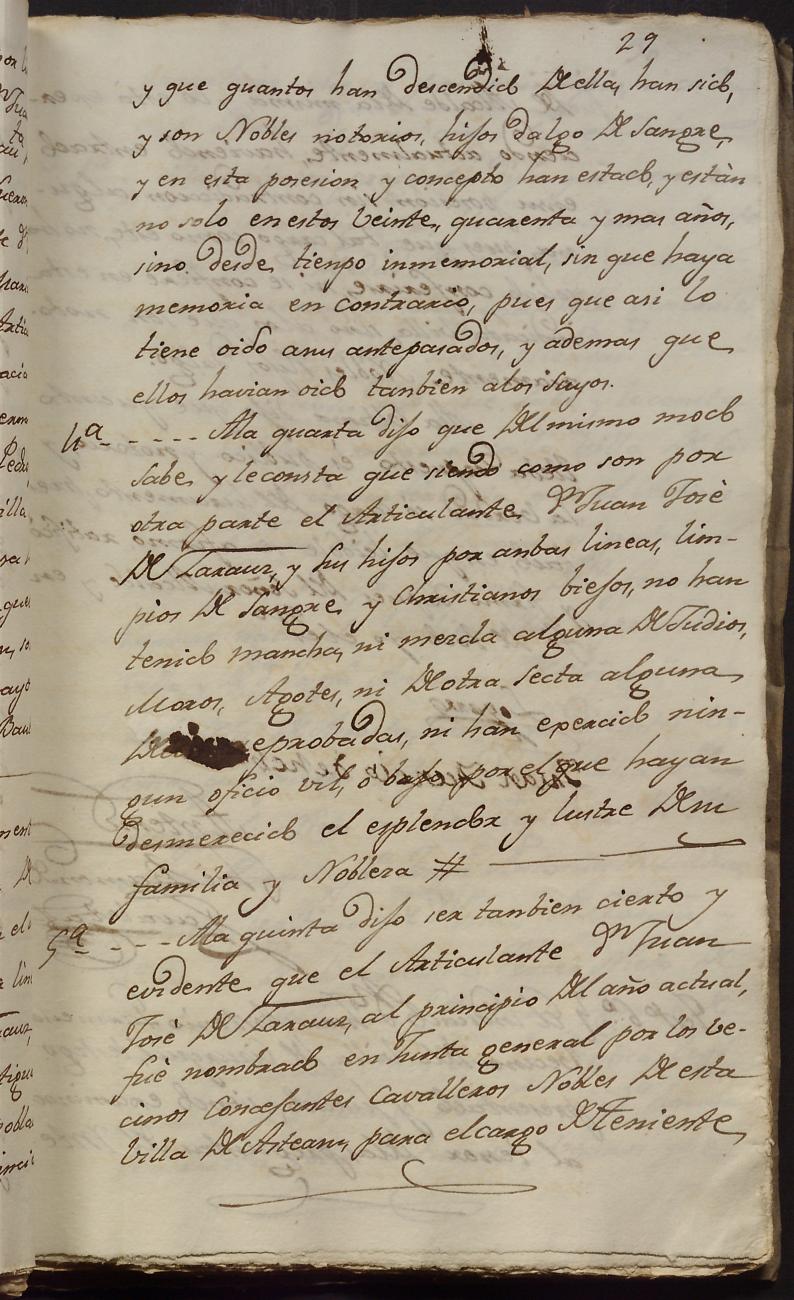 29
y que quantos han descendido de ella, han sido,
y son Nobles notorios, hijos dalgo de sangre,
y en esta posesion y concepto han estado, y están
no solo en estos veinte, quarenta y mas años,
sino desde tienpo inmemorial, sin que haya
memoria en contrario, pues que asi lo
tiene oido asus antepasados, y ademas que
ellos havian oido tanbien alos suyos.
4ª - - - - Ala quarta dijo que del mismo modo
sabe, y le consta que siendo como son por
otra parte el Articulante Dn Juan Josè
de Zarauz, y sus hijos por anbas lineas, lim-
pios de sangre, y Christianos biejos, no han
tenido mancha, ni mezcla alguna de Judios,
Moros, Agotes, ni de otra secta alguna
eprobadas, ni han exercido nin-
gun oficio vil, ò bajo, por el que hayan
desmerecido el esplendor y lustre de su
familia y Nobleza #
5ª - - - - Ala quinta dijo ser tanbien cierto y
evidente que el Articulante Dn Juan
Josè de Zarauz, al principio del año actual,
fuè nombrado en Junta general por los ve-
cinos Concejantes Cavalleros Nobles de esta
villa de Asteasu, para el cargo de Teniente